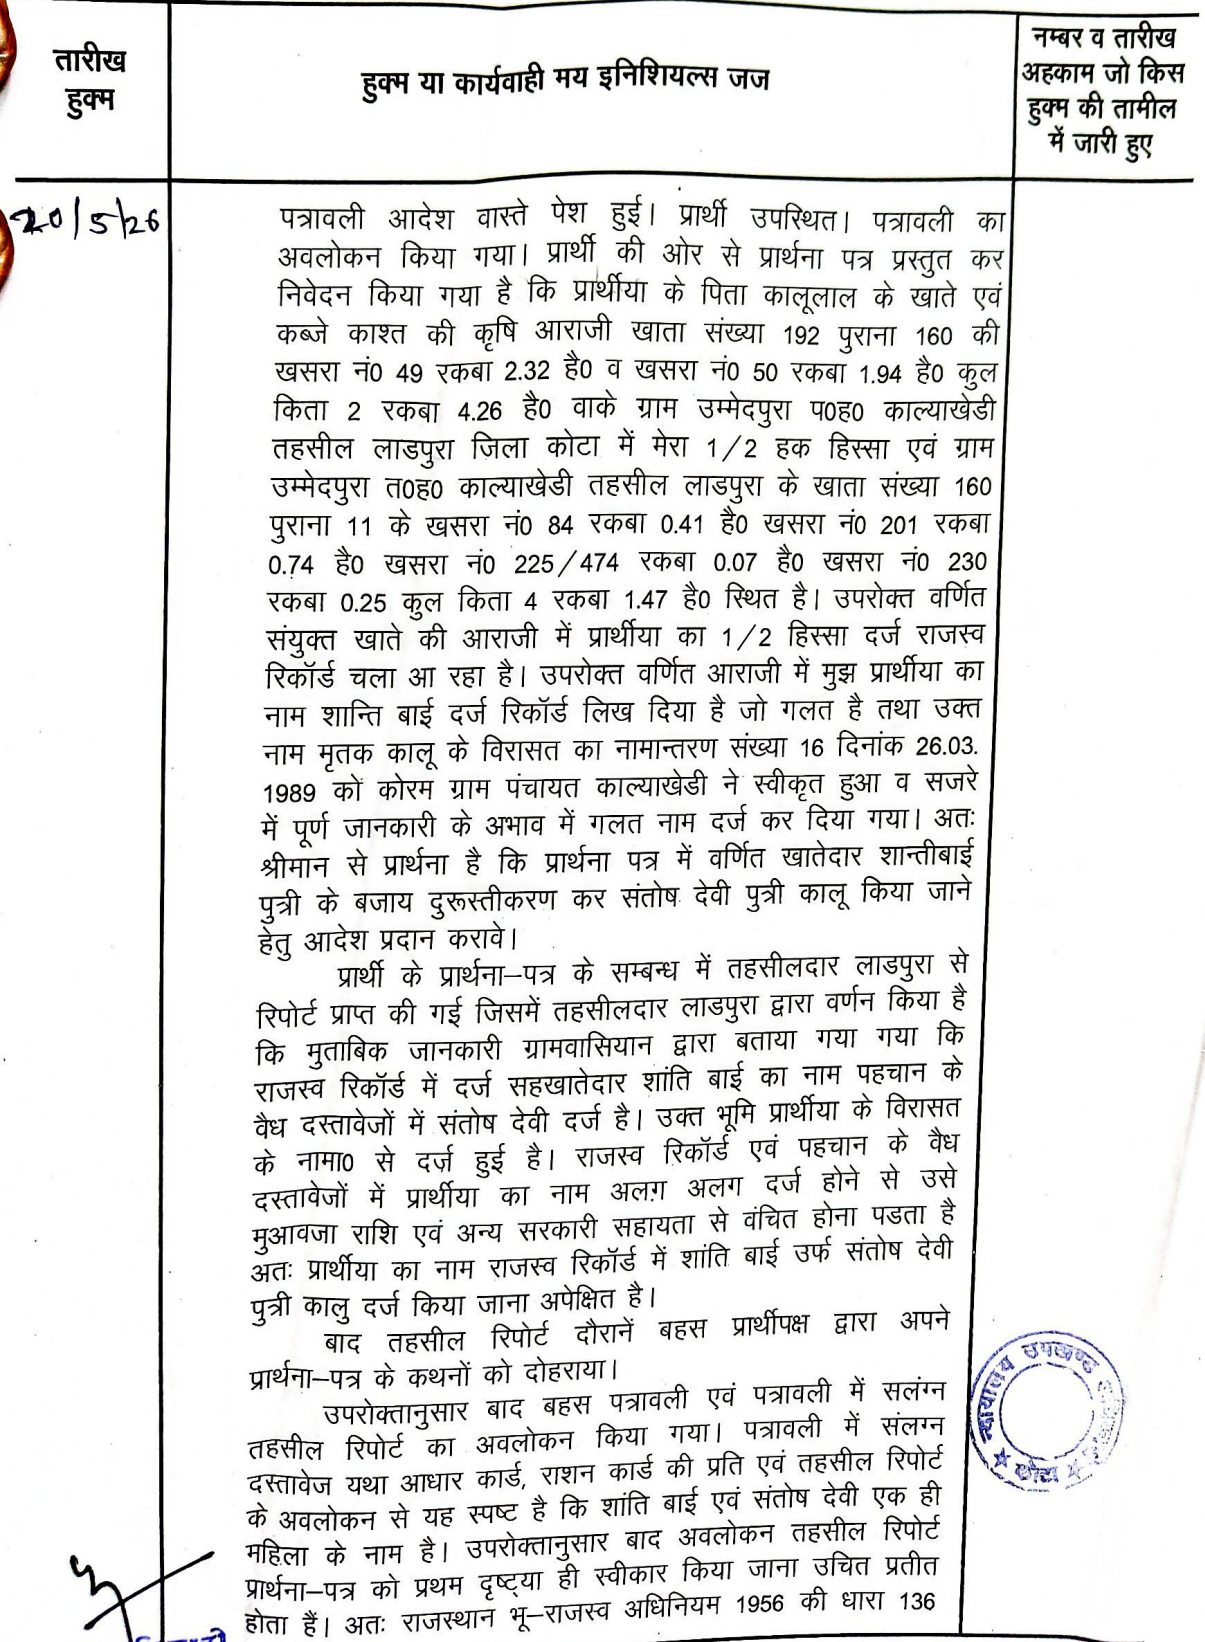 तारीख
हुक्म
हुक्म या कार्यवाही मय इनिशियल्स जज
नम्बर व तारीख
अहकाम जो किस
हुक्म की तामील
में जारी हुए
20/5/26
पत्रावली आदेश वास्ते पेश हुई। प्रार्थी उपस्थित। पत्रावली का
अवलोकन किया गया। प्रार्थी की ओर से प्रार्थना पत्र प्रस्तुत कर
निवेदन किया गया है कि प्रार्थीया के पिता कालूलाल के खाते एवं
कब्जे काश्त की कृषि आराजी खाता संख्या 192 पुराना 160 की
खसरा नं0 49 रकबा 2.32 है0 व खसरा नं0 50 रकबा 1.94 है0 कुल
किता 2 रकबा 4.26 है0 वाके ग्राम उम्मेदपुरा प0ह0 काल्याखेडी
तहसील लाडपुरा जिला कोटा में मेरा 1/2 हक हिस्सा एवं ग्राम
उम्मेदपुरा त0ह0 काल्याखेडी तहसील लाडपुरा के खाता संख्या 160
पुराना 11 के खसरा नं0 84 रकबा 0.41 है0 खसरा नं0 201 रकबा
0.74 है0 खसरा नं0 225/474 रकबा 0.07 है0 खसरा नं0 230
रकबा 0.25 कुल किता 4 रकबा 1.47 है0 स्थित है। उपरोक्त वर्णित
संयुक्त खाते की आराजी में प्रार्थीया का 1/2 हिस्सा दर्ज राजस्व
रिकॉर्ड चला आ रहा है। उपरोक्त वर्णित आराजी में मुझ प्रार्थीया का
नाम शान्ति बाई दर्ज रिकॉर्ड लिख दिया है जो गलत है तथा उक्त
नाम मृतक कालू के विरासत का नामान्तरण संख्या 16 दिनांक 26.03.
1989 कों कोरम ग्राम पंचायत काल्याखेडी ने स्वीकृत हुआ व सजरे
में पूर्ण जानकारी के अभाव में गलत नाम दर्ज कर दिया गया। अतः
श्रीमान से प्रार्थना है कि प्रार्थना पत्र में वर्णित खातेदार शान्तीबाई
पुत्री के बजाय दुरूस्तीकरण कर संतोष देवी पुत्री कालू किया जाने
हेतु आदेश प्रदान करावे।
प्रार्थी के प्रार्थना–पत्र के सम्बन्ध में तहसीलदार लाडपुरा से
रिपोर्ट प्राप्त की गई जिसमें तहसीलदार लाडपुरा द्वारा वर्णन किया है
कि मुताबिक जानकारी ग्रामवासियान द्वारा बताया गया गया कि
राजस्व रिकॉर्ड में दर्ज सहखातेदार शांति बाई का नाम पहचान के
वैध दस्तावेजों में संतोष देवी दर्ज है। उक्त भूमि प्रार्थीया के विरासत
के नामा0 से दर्ज हुई है। राजस्व रिकॉर्ड एवं पहचान के वैध
दस्तावेजों में प्रार्थीया का नाम अलग अलग दर्ज होने से उसे
मुआवजा राशि एवं अन्य सरकारी सहायता से वंचित होना पडता है
अतः प्रार्थीया का नाम राजस्व रिकॉर्ड में शांति बाई उर्फ संतोष देवी
पुत्री कालु दर्ज किया जाना अपेक्षित है।
बाद तहसील रिपोर्ट दौरानें बहस प्रार्थीपक्ष द्वारा अपने
प्रार्थना–पत्र के कथनों को दोहराया।
उपरोक्तानुसार बाद बहस पत्रावली एवं पत्रावली में सलंग्न
तहसील रिपोर्ट का अवलोकन किया गया। पत्रावली में संलग्न
दस्तावेज यथा आधार कार्ड, राशन कार्ड की प्रति एवं तहसील रिपोर्ट
के अवलोकन से यह स्पष्ट है कि शांति बाई एवं संतोष देवी एक ही
महिला के नाम है। उपरोक्तानुसार बाद अवलोकन तहसील रिपोर्ट
प्रार्थना–पत्र को प्रथम दृष्ट्या ही स्वीकार किया जाना उचित प्रतीत
होता हैं। अतः राजस्थान भू–राजस्व अधिनियम 1956 की धारा 136
न्यायालय उपखण्ड
कोटा